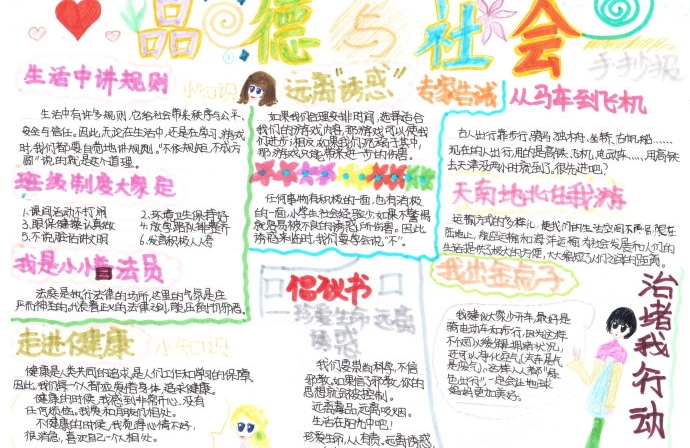 品德与社会
手抄报
生活中讲规则
小知识
生活中有许多规则,它给社会带来秩序与公平,
安全与信任。因此,无论在生活中,还是在学习、游戏
时,我们都要自觉地讲规则。"不依规矩,不成方
圆"说的就是这个道理。
班级制度大家定
1.课间活动不打闹
2.环境卫生保持好
3.眼保健操认真做
4.放学路队排整齐
5.不说脏话讲文明
6.发言积极人人夸
我是小小法官员
法庭是执行法律的场所,这里的气氛是庄
严而神圣的,代表着正义的法律之剑,随
走进健康
小知识
健康是人类共同的追求,是人们工作和学习的保障。
因此,我们每一个都应爱惜身体,追求健康。
健康的时候,我感到非常开心,没有
任何烦恼。
不健康的时候,我觉得心情不好,
很消沉,喜欢自己一个人相处。
远离"诱惑"
如果我们合理安排时间,选择适合
我们的游戏内容,那游戏可以使我
们进步;相反,如果我们沉溺于其中,
那游戏只能带来进一步的伤害。
任何事物有积极的一面,也有消极
的一面。小学生社会经验少,如果不警惕
就容易被不良的诱惑所伤害。因此
诱惑来临时,我们要学会说"不"。
倡议书
珍爱生命 远离
诱惑
我们要崇尚科学,不信
邪教,如果信了邪教,你的
思想就会被控制。
远离毒品,远离吸烟。
生活在阳光中吧!
珍爱生命,人人有责,远离诱惑
专家告诫
从马车到飞机
古人出行靠步行、骑马、独木舟、坐轿、古帆船……
现在的人出行,用的是高铁、飞机、电动车……,用高铁
去天津没两小时就到了,很先进吧?
天南地北任我游
运输方式的多样化,使我们的社会交往不再名
陆地上,
生活提供了极大的方便,大大缩短了人们之间的距离。
我出金点子
我建议大家少开车,最好是
骑电动车和步行,因为这样
不仅可以缓解拥堵状况,
还可以净化空气(汽车是气
是废气)。这样人人都"绿
色出行",一定会让地球
妈妈更加美好。
治堵我行动